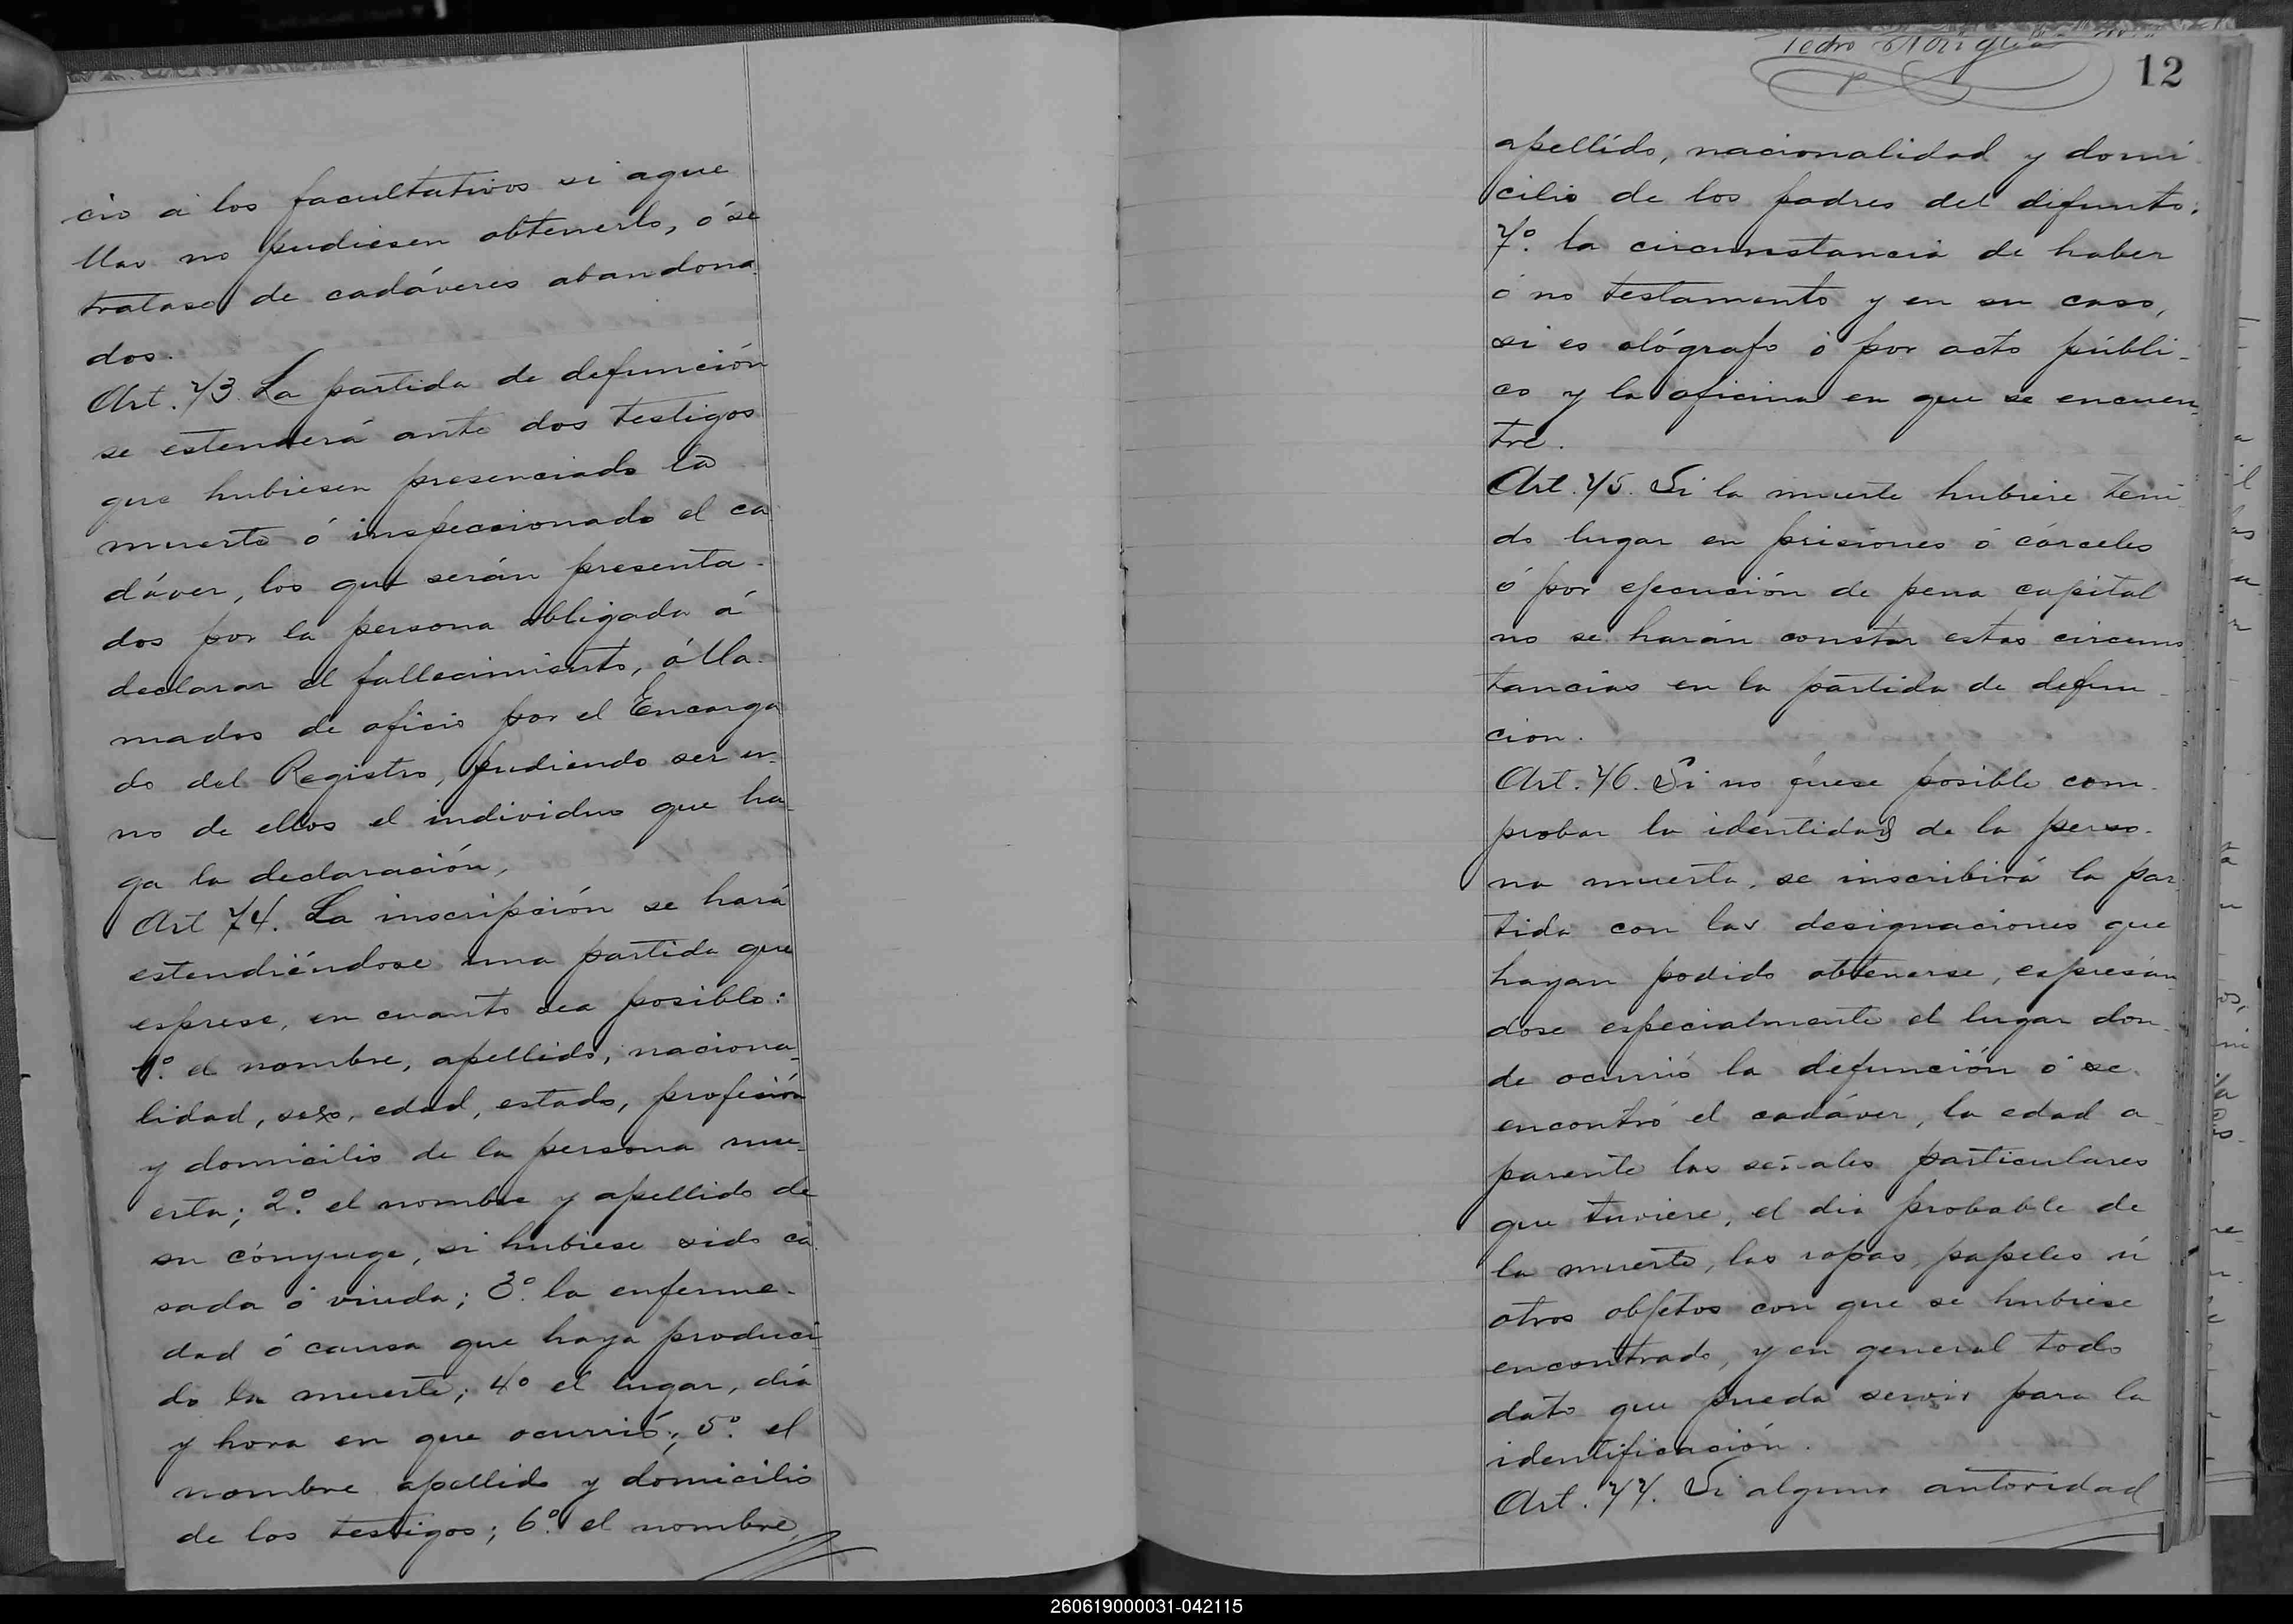 cio á los facultativos si aque
llas no pudiesen obtenerlo, ó se
tratase de cadáveres abandona
dos.
Art. 73. La partida de defunción
se estenderá ante dos testigos
que hubiesen presenciado la
muerte ó inspeccionado el ca
dáver, los que serán presenta-
dos por la persona obligada á
declarar el fallecimiento, ó lla-
mados de oficio por el Encarga
do del Registro, pudiendo ser u-
no de ellos el individuo que ha-
ga la declaración,
Art 74. La inscripción se hará
estendiéndose una partida que
esprese, en cuanto sea posible:
1º. el nombre, apellido, naciona-
lidad, sexo, edad, estado, profesión
y domicilio de la persona mu-
erta; 2º. el nombre y apellido de
su cónyuge, si hubiese sido ca
sada ó viuda; 3º. la enferme-
dad ó causa que haya produci
do la muerte; 4º el lugar, dia
y hora en que ocurrió; 5º. el
nombre apellido y domicilio
de los testigos; 6º. el nombre,
Pedro
12
apellido, nacionalidad y domi
cilio de los padres del difunto;
7º. la circunstancia de haber
ó no testamento y en su caso,
si es ológrafo ó por acto públi-
co y la oficina en que se encuen-
tre.
Art. 75. Si la muerte hubiere teni
do lugar en prisiones ó cárceles
ó por ejecución de pena capital
no se harán constar estas circuns
tancias en la partida de defun-
cion.
Art. 76. Si no fuese posible com-
probar la identidad de la perso-
na muerta, se inscribirá la par
tida con las designaciones que
hayan podido obtenerse, espresán
dose especialmente el lugar don-
de ocurrió la defunción ó se
encontró el cadáver, la edad a-
parente las señales particulares
que tuviere, el dia probable de
la muerte, las ropas, papeles ú
otros objetos con que se hubiese
encontrado, y en general todo
dato que pueda servir para la
identificación.
Art. 77. Si alguna autoridad
260619000031-042115